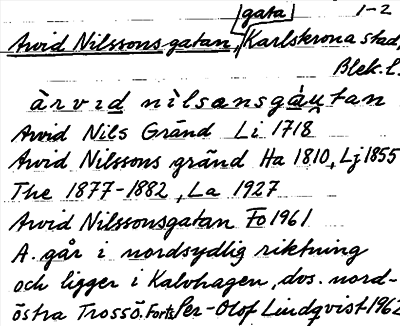 gata 1-2
Arvid Nilssons gatan, Karlskrona stad,
Blek. l.
àrvid nìlsansgáụtan
Arvid Nils Gränd Li 1718
Arvid Nilssons gränd Ha 1810, Lj 1855
The 1877-1882, La 1927
Arvid Nilssonsgatan Fo 1961
A. går i nordsydlig riktning
och ligger i Kalvhagen, dvs. nord-
östra Trossö. Forts Per-Olof Lindqvist 1962